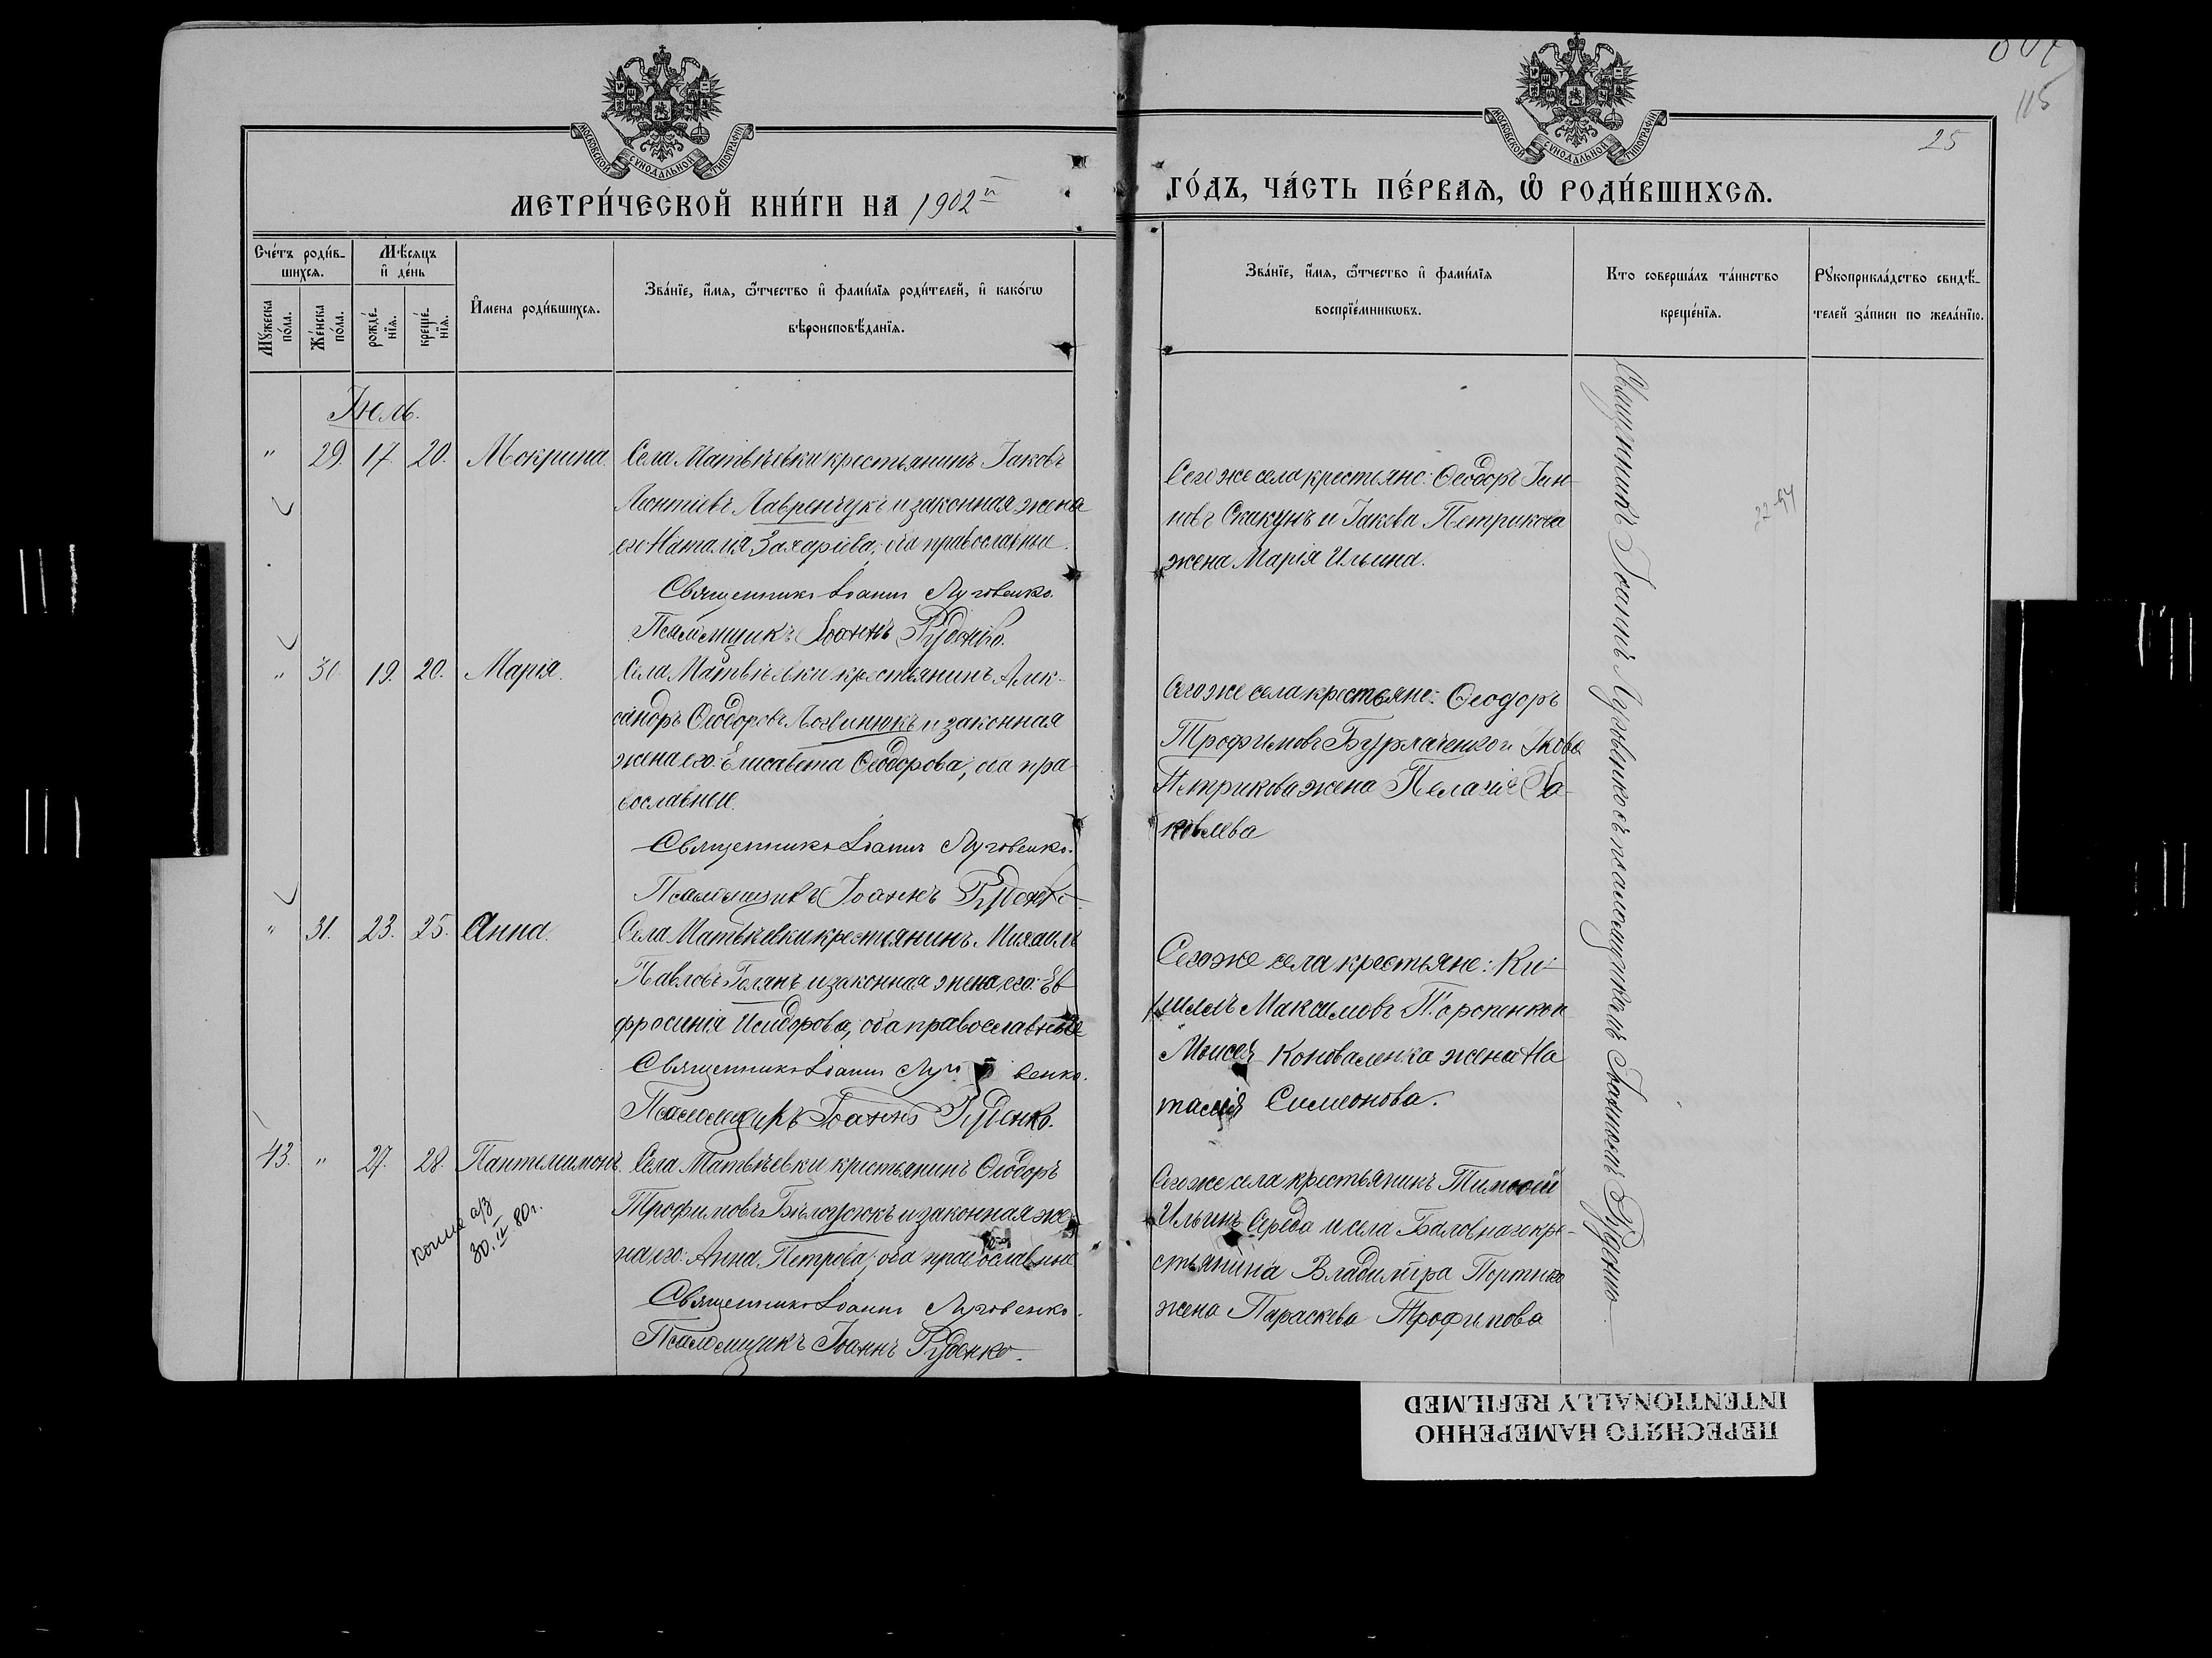 115
25
МОСКОВСКОЙ СѴНОДАЛЬНОЙ ТИПОГРАФІИ
МОСКОВСКОЙ СѴНОДАЛЬНОЙ ТИПОГРАФІИ
МЕТРИ́ЧЕСКОЙ КНИ́ГИ НА 1902й
ГО́ДЪ, ЧА́СТЬ ПЕ́РВАЯ, Ѡ РОДИ́ВШИХСЯ.
Сче́тъ роди́в-
шихся.
Мꙋжеска по́ла.
Же́нска по́ла.
Мѣ́сяцъ
и҆ де́нь
рожде́-
нїя.
креще́-
нїя.
И҆мена роди́вшихся.
Зва́нїе, и҆́мя, ѻ҆́тчество и҆ фами́лїя роди́телей, и҆ како́гѡ
вѣроисповѣ́данїя.
Зва́нїе, и҆́мя, ѻ҆́тчество и҆ фами́лїя
воспрїе́мникѡвъ.
Кто соверша́лъ та́инство
креще́нїя.
Рꙋкоприкла́дство свидѣ́-
телей за́писи по жела́нїю.
Іюль.
" 29. 17. 20. Мокрина.
Села Матвѣевки крестьянинъ Іаковъ
Леонтіевъ Лавренчукъ и законная жена
его Наталія Захаріева, оба православные.
Священникъ Іоаннъ Луговенко.
Псаломщикъ Іоаннъ Руденко.
Сего же села крестьяне: Ѳеодоръ Іан-
новъ Скакунъ и Іакова Петрикова
жена Марія Ильина.
" 30. 19. 20. Марія.
Села Матвѣевки крестьянинъ Алек-
сандръ Ѳеодоровъ Логвинюкъ и законная
жена его Елисавета Ѳеодорова, оба пра-
вославные.
Священникъ Іоаннъ Луговенко.
Псаломщикъ Іоаннъ Руденко
Сего же села крестьяне: Ѳеодоръ
Трофимовъ Бурлаченко и Якова
Петрикова жена Пелагія Іа-
ковлева
" 31. 23. 25. Анна.
Села Матвѣевки крестьянинъ Михаилъ
Павловъ Голякъ и законная жена его Ев-
фросинія Исидорова, оба православные
Священникъ Іоаннъ Луговенко.
Псаломщикъ Іоаннъ Руденко.
Сего же села крестьяне: Ки-
риллъ Максимовъ и
Моисея Коноваленка жена На
талія Симеонова.
43. " 27. 28. Пантелеимонъ.
копия а/з
30.IX 80г.
Села Матвѣевки крестьянинъ Ѳеодоръ
Трофимовъ Бѣлоусюкъ и законная же-
на его Анна Петрова, оба православные
Священникъ Іоаннъ Луговенко.
Псаломщикъ Іоаннъ Руденко.
Сего же села крестьянинъ Тимоѳей
Ильинъ Середа и села Баловнаго кре-
стьянина Владиміра
жена Параскева Трофимова
Священникъ Іоаннъ Луговенко съ псаломщикомъ Іоанномъ Руденко
22-94
ПЕРЕСНЯТО НАМЕРЕННО
INTENTIONALLY REFILMED